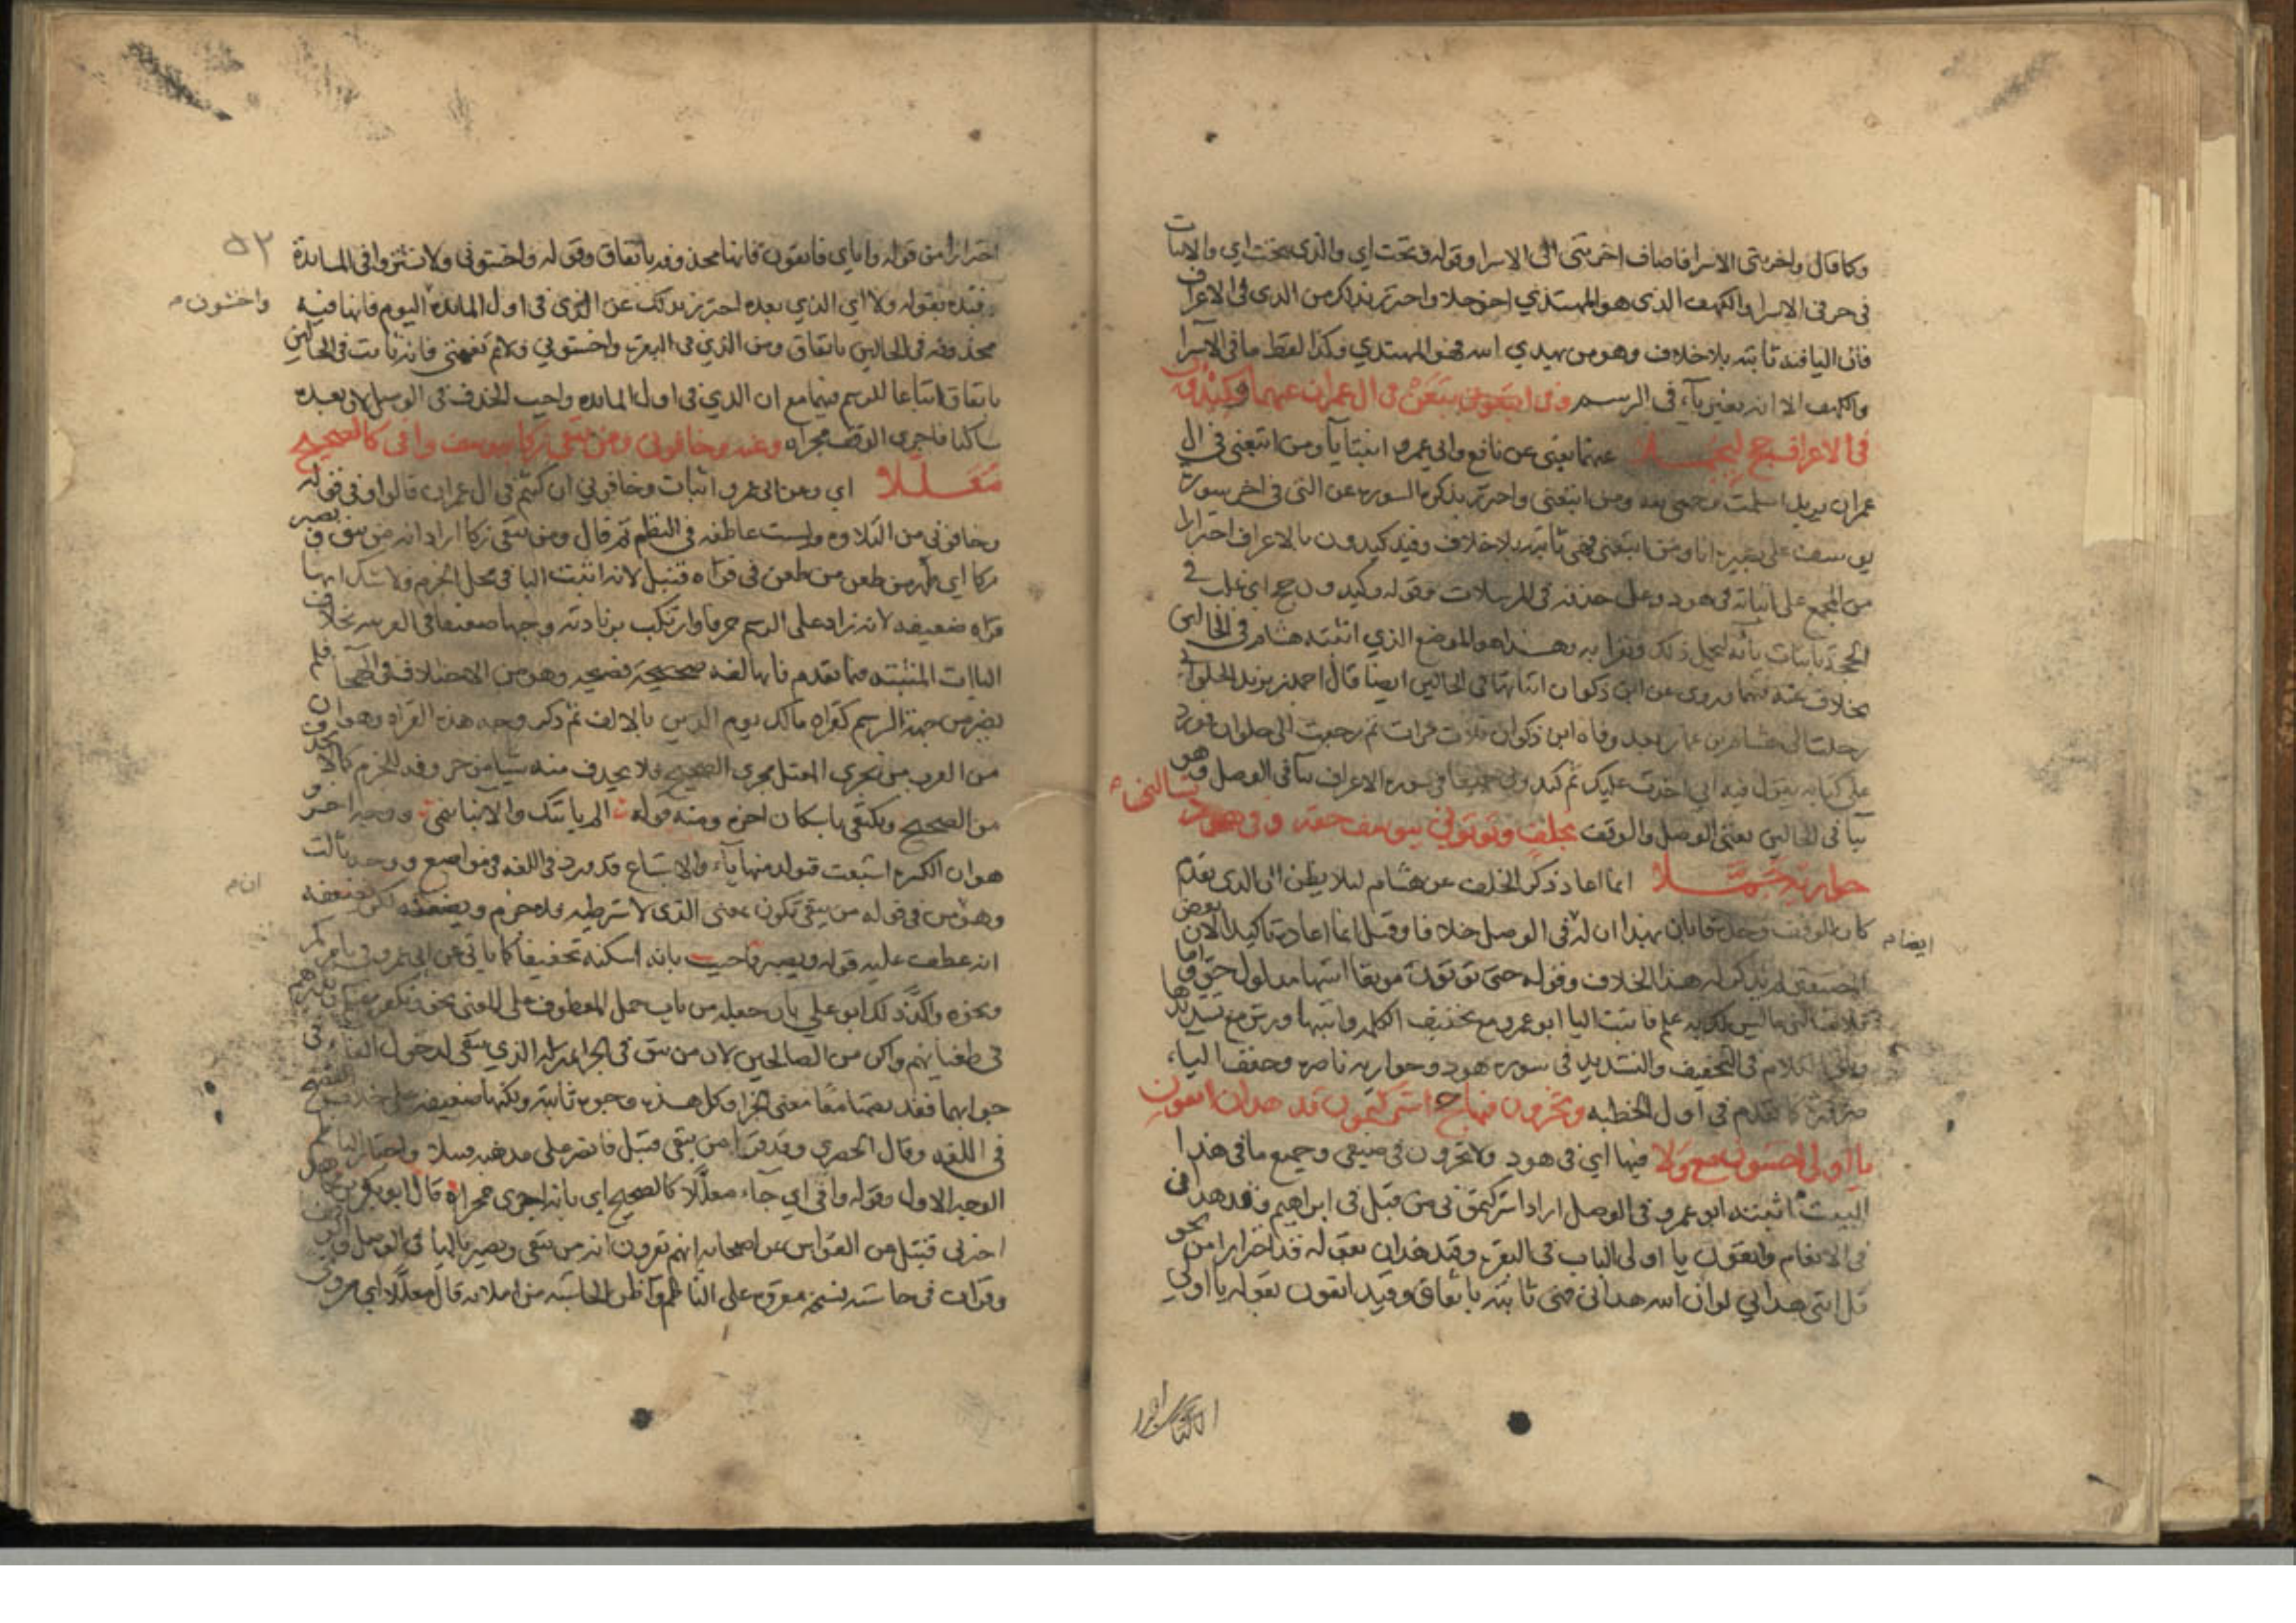 وكما قال واخرتني الاسرا فاضاف اخرتني الى الاسرا وقوله وتحت اي والذي تحت اي والاثبات
في حرفي الاسرا والكهف الذي هو المهتدي اخو حلا واحترز بذلك من الذي في الاعراف
فان اليا فيه ثابته بلا خلاف وهو من يهدي الله فهو المهتدي وكذا لفظ ما في الاسرا
والكهف الا انه بغير ياء في الرسم وفي اتبعوني تبعن في ال عمران عنهما وكيدون
في الاعراف حج ليحملا عنهما يعني عن نافع وابي عمرو اثبتا يا ومن اتبعني في ال
عمران يريد اسلمت وجهي لله ومن اتبعني واحترز بذكر السورة عن التي في اخر سورة
يوسف على بصيرة انا ومن اتبعني فهي ثابته بلا خلاف وقيد كيدون بالاعراف احترازا
من المجمع على اثباته في هود وعلى حذفه في المرسلات وقوله وكيدون حج اي غلب في
الحجة باثبات يائه ليحمل ذلك ويقرا به وهذا هو الموضع الذي اثبته هشام في الحالين
بخلاف عنه فيهما وروى عن ابن ذكوان اثباتها في الحالين ايضا قال احمد بن يزيد الحلواني
رحلت الى هشام بن عمار بعد وفاة ابن ذكوان ثلاث مرات ثم رجعت الى حلوان فورد
علي كتابه يقول فيه اني اخذت عليك ثم كيدون في سورة الاعراف بيا في الوصل وهو
بيا في الحالين يعني الوصل والوقف بخلف وتوتوني بيوسف حقه وفي هود تسالني
حواريه جملا انما اعاد ذكر الخلف عن هشام ليلا يظن ان الذي تقدم
كان للوقف وحده فابان بهذا ان له في الوصل خلافا وقيل انما اعاده تاكيدا لان بعض
ايضا
المصنفين لم يذكر له هذا الخلاف وقوله حتى توتون موثقا اثبتها مدلول حق واما
فلا تسالني ما ليس لك به علم فاثبت اليا ابو عمرو مع تخفيف الكلمة واثبتها ورش مع تشديدها
الكلام في التخفيف والتشديد في سورة هود وحواريه ناصره وخفف الياء
ضرورة كما تقدم في اول الخطبة وتخزون فيها حج اشركتمون قد هدان اتقون
يا اولي اخشون مع ولا فيها اي في هود ولا تخزون في ضيفي وجميع ما في هذا
البيت اثبته ابو عمرو في الوصل اراد اشركتمون من قبل في ابراهيم وقد هدان
في الانعام واتقون يا اولي الالباب في البقرة وقيد هدان بقوله قد احترازا من نحو
قل انني هداني لو ان الله هداني فهي ثابته باتفاق وقيد اتقون بقوله يا اولي
احترازا من قوله واياي فاتقون فانها محذوفه باتفاق وقوله واخشوني ولا تشتروا في المائدة
٥٢
قيده بقوله ولا اي الذي بعده احترز بذلك عن الذي في اول المائده اليوم فانها فيه
واخشون
محذوفه في الحالين باتفاق ومن الذي في البقرة واخشوني ولاتم نعمتي فانه ثابت في الحالين
باتفاق اتباعا للرسم فيهما مع ان الذي في اول المائده واجب الحذف في الوصل لان بعده
ساكنا فاجري الوقف مجراه وعنه وخافوني ومن يتقي زكا بيوسف وافى كالصحيح
معللا اي وعن ابي عمرو اثبات وخافوني ان كنتم في ال عمران قالوا وفي قوله
وخافوني من التلاوة وليست عاطفه في النظم ثم قال ومن يتقي زكا اراد انه من يتق ويصبر
زكا اي طهر من طعن من طعن في قراه قنبل لانه اثبت اليا في محل الجزم ولا شك انها
قراه ضعيفه لانه زاد على الرسم حرفا وارتكب بزيادته وجها ضعيفا في العربيه بخلاف
الياات المثبته فيما تقدم فانها لغه صحيحة فصيحه وهو من الاختلاف في الهجا فلم
يضر من جهة الرسم كقراه مالك يوم الدين بالالف ثم ذكر وجه هذه القراه وهو ان
من العرب من يجري المعتل مجرى الصحيح فلا يحذف منه شيا من حروفه للجزم كما لا يحذف
من الصحيح ويكتفي باسكان اخره ومنه قوله الم ياتيك والانبا تنمي ووجه اخر وهو
هو ان الكسرة اشبعت فتولد منها ياء والاشباع قد ورد في اللغه في مواضع ووجه ثالث
ان
وهو من في قوله من يتقي تكون بمعنى الذي لا شرطيه فلا جزم
انه عطف عليه قوله ويصبر فاجيب بانه اسكنه تخفيفا كما ياتي عن ابي عمرو في يامركم
ونحوه واكد ذلك ابو علي بان جعله من باب حمل المعطوف على المعنى
في طغيانهم واكن من الصالحين لان من يتق في الجزا بمنزلة الذي يتقي لدخول الفاء في
جوابهما فقد تضمنا معا معنى الجزا وكل هذه وجوه ثابته ولكنها ضعيفه
في اللغه وقال الحصري وقد قرا من يتقي قنبل فانصر على مذهبه قنبلا
الوجه الاول وقوله وافى اي جاء معللا كالصحيح اي بانه اجري مجراه قال ابو بكر بن مجاهد
اخبرني قنبل عن القواس عن اصحابه انهم يقرون انه من يتقي ويصبر باليا في الوصل والوقف
وقرات في حاشيه نسخه مقروة على الناظم واظن الحاشيه من املائه قال معللا اي مروي